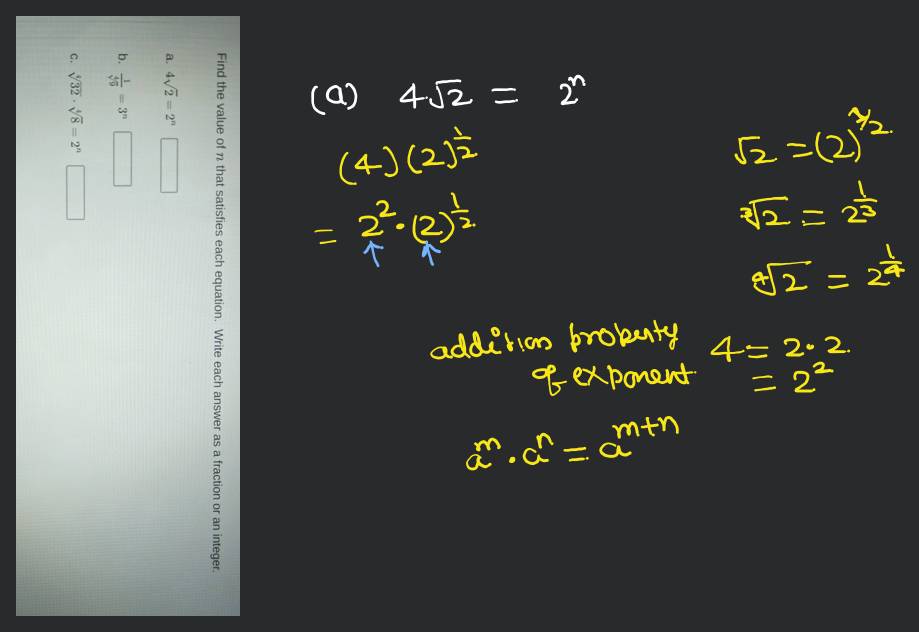 Find the value of n that satisfies each equation. Write each answer as a fraction or an integer.
a. 4√2 = 2ⁿ
= 3ⁿ
= 2ⁿ
(a) 4√2 = 2ⁿ
(4)(2)^½
= 2² · (2)^½
√2 = (2)^½.
∛2 = 2^⅓
∜2 = 2^¼
addition property
of exponent.
4 = 2 · 2.
= 2²
aᵐ · aⁿ = aᵐ⁺ⁿ